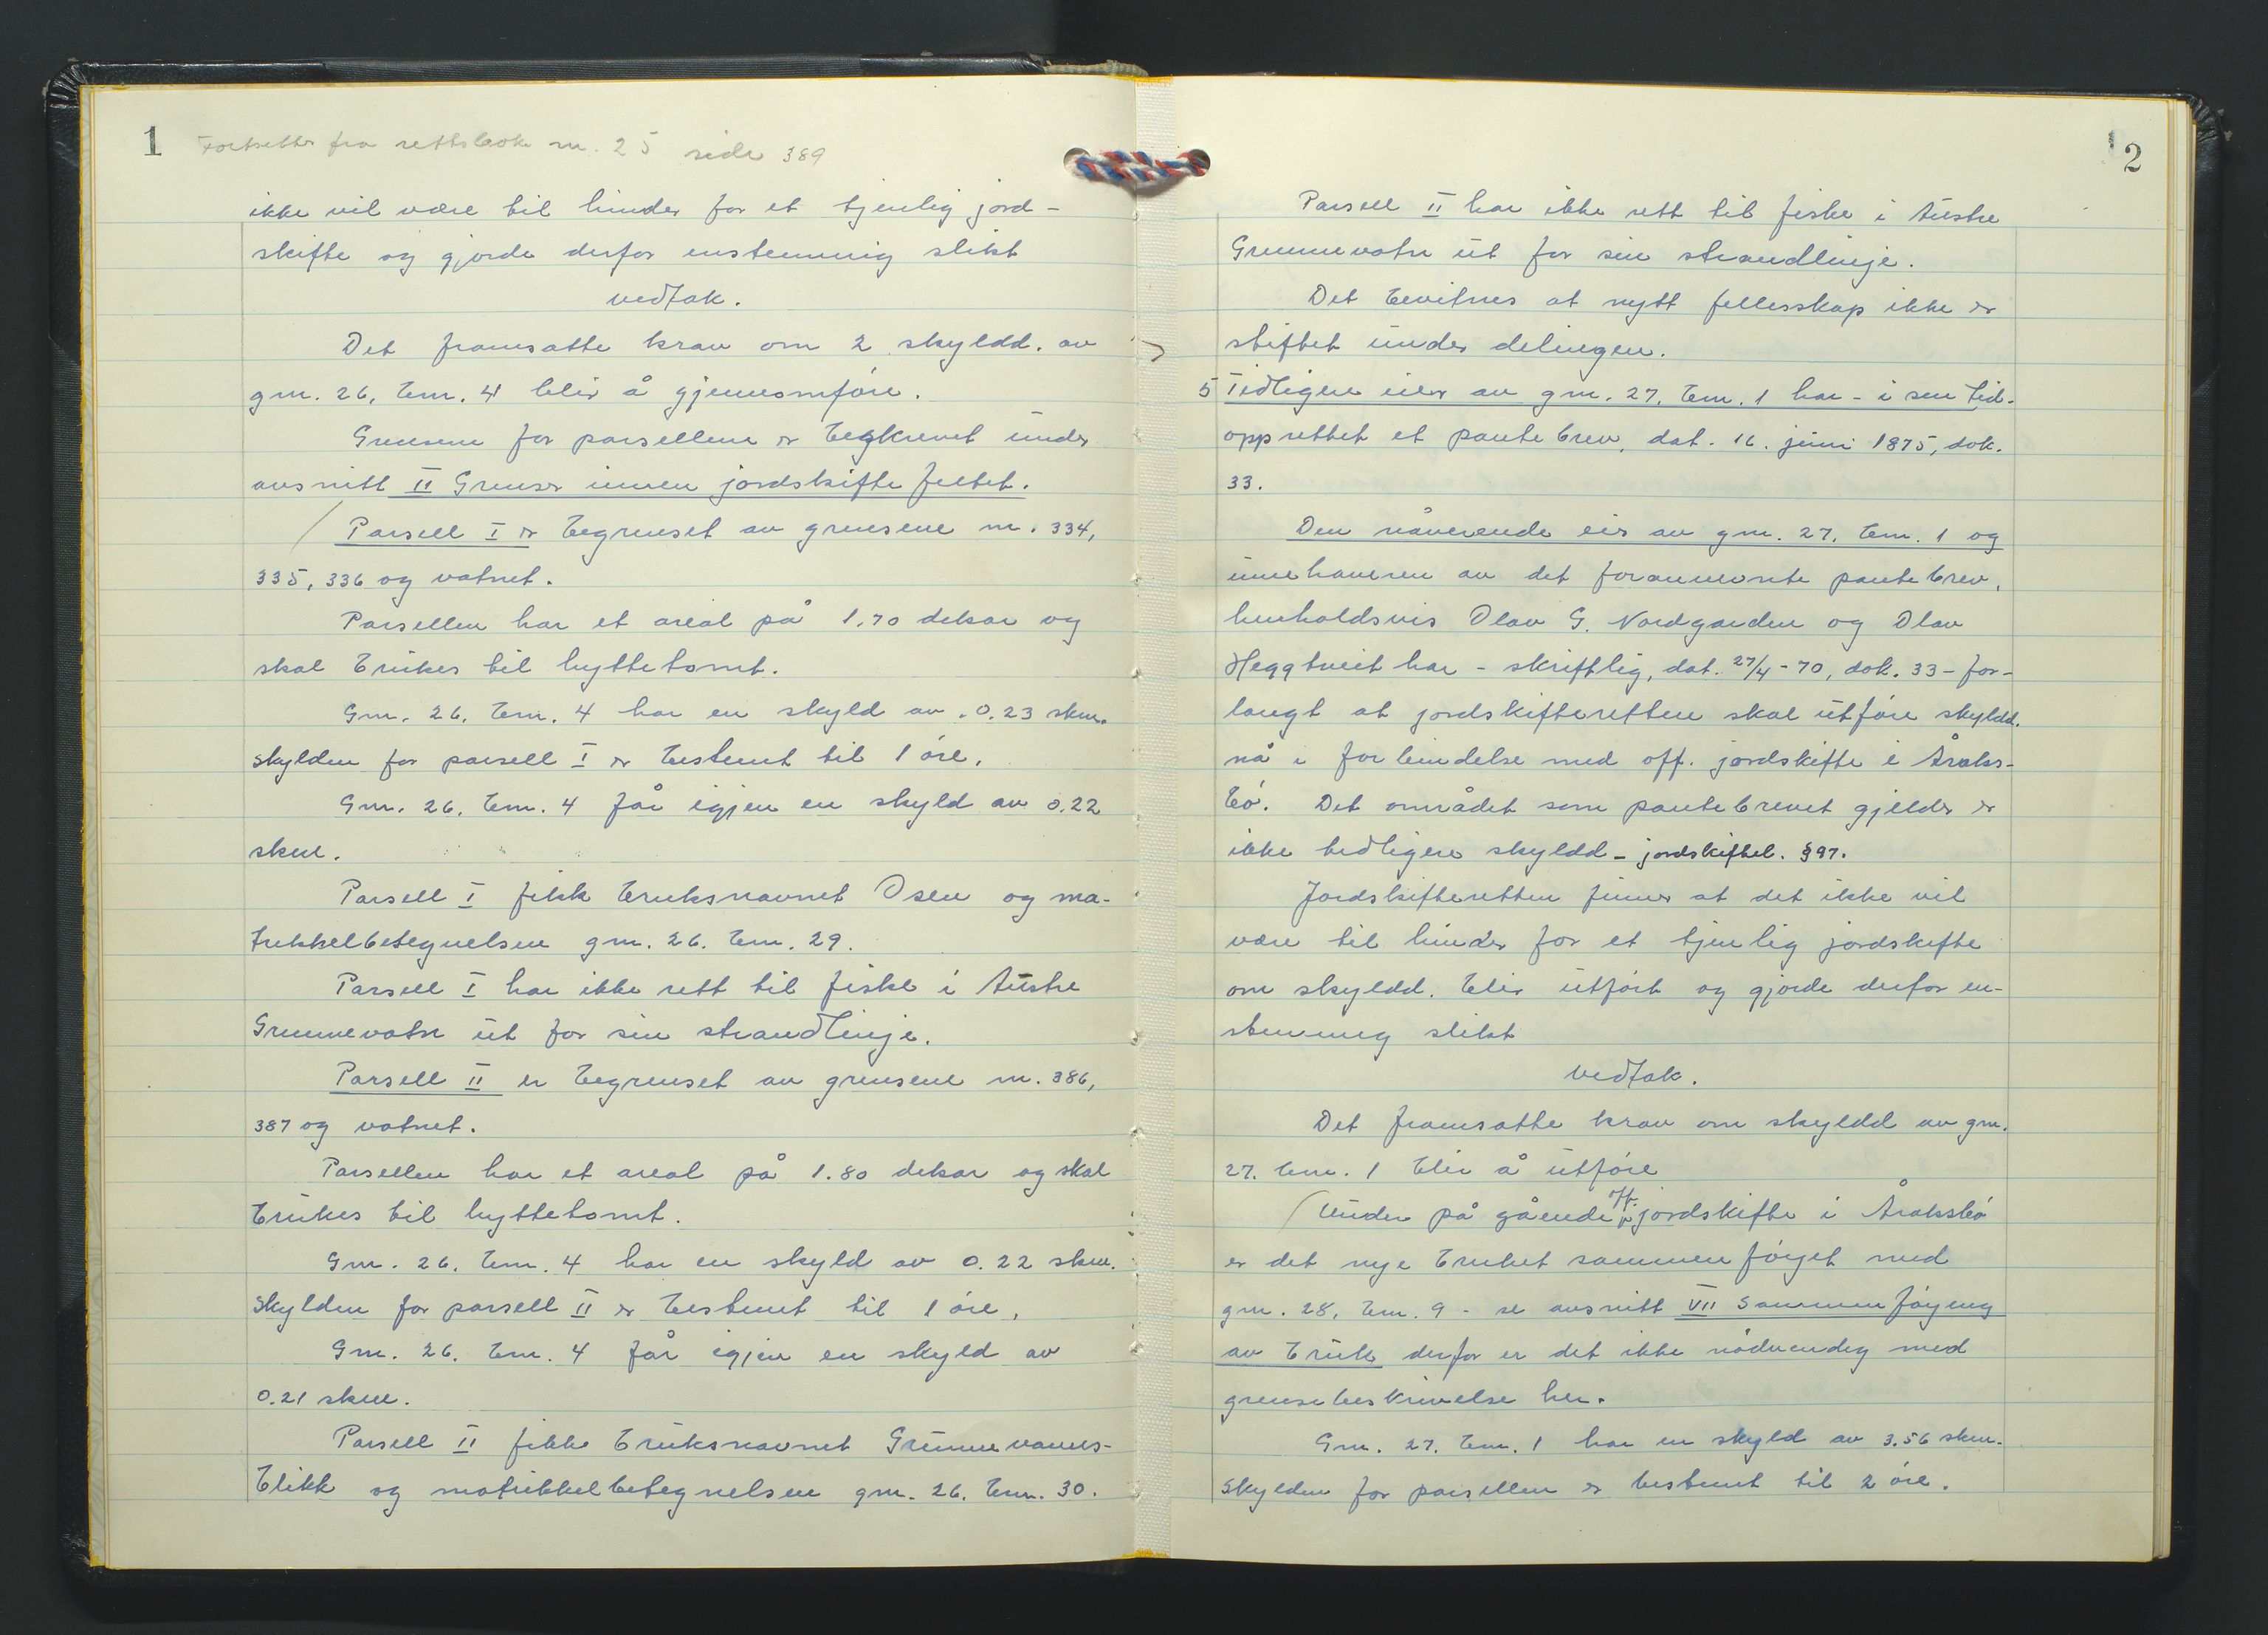 1 Fortsetter fra rettsbok nr. 25 side 389
ikke vil være til hinder for et tjenlig jord-
skifte og gjorde derfor enstemmig slikt
vedtak.
Det framsatte krav om 2 skyldd. av
gnr. 26, bnr. 4 blir å gjennomføre.
Grensene for parsellene er beskrevet under
avsnitt II Grenser innen jordskiftefeltet.
Parsell I er begrenset av grensene nr. 334,
335, 336 og vatnet.
Parsellen har et areal på 1.70 dekar og
skal brukes til hyttetomt.
Gnr. 26, bnr. 4 har en skyld av 0.23 skm.
Skylden for parsell I er bestemt til 1 øre.
Gnr. 26, bnr. 4 får igjen en skyld av 0.22
skm.
Parsell I fikk bruksnavnet Osen og ma-
trikkelbetegnelsen gnr. 26. bnr. 29.
Parsell I har ikke rett til fiske i Austre
Grunnevatn ut for sin strandlinje.
Parsell II er begrenset av grensene nr. 386,
387 og vatnet.
Parsellen har et areal på 1.80 dekar og skal
brukes til hyttetomt.
Gnr. 26, bnr. 4 har en skyld av 0.22 skm.
Skylden for parsell II er bestemt til 1 øre.
Gnr. 26. bnr. 4 får igjen en skyld av
0.21 skm.
Parsell II fikk bruksnavnet Grunnevanns-
blikk og matrikkelbetegnelsen gnr. 26. bnr. 30.
2
Parsell II har ikke rett til fiske i Austre
Grunnevatn ut for sin strandlinje.
Det bevitnes at nytt fellesskap ikke er
stiftet under delingen.
5 Tidligere eier av gnr. 27, bnr. 1 har - i sin tid-
opprettet et pantebrev, dat. 16. juni 1875, dok.
33.
Den nåværende eier av gnr. 27, bnr. 1 og
innehaveren av det forannevnte pantebrev,
henholdsvis Olav G. Nordgarden og Olav
Heggtveit har - skriftlig, dat. 27/4-70, dok. 33 - for-
langt at jordskifteretten skal utføre skyldd.
nå i forbindelse med off. jordskifte i Åraks-
bø. Det området som pantebrevet gjelder er
ikke tidligere skyldd - jordskiftel. § 97.
Jordskifteretten finner at det ikke vil
være til hinder for et tjenlig jordskifte
om skyldd. blir utført og gjorde derfor en-
stemmig slikt
vedtak.
Det framsatte krav om skyldd av gnr.
27. bnr. 1 blir å utføre
Under pågående off. jordskifte i Åraksbø
er det nye bruket sammenføyet med
gnr. 28, bnr. 9 - se avsnitt VII Sammenføying
av bruk derfor er det ikke nødvendig med
grensebeskrivelse her.
Gnr. 27. bnr. 1 har en skyld av 3.56 skm.
Skylden for parsellen er bestemt til 2 øre.